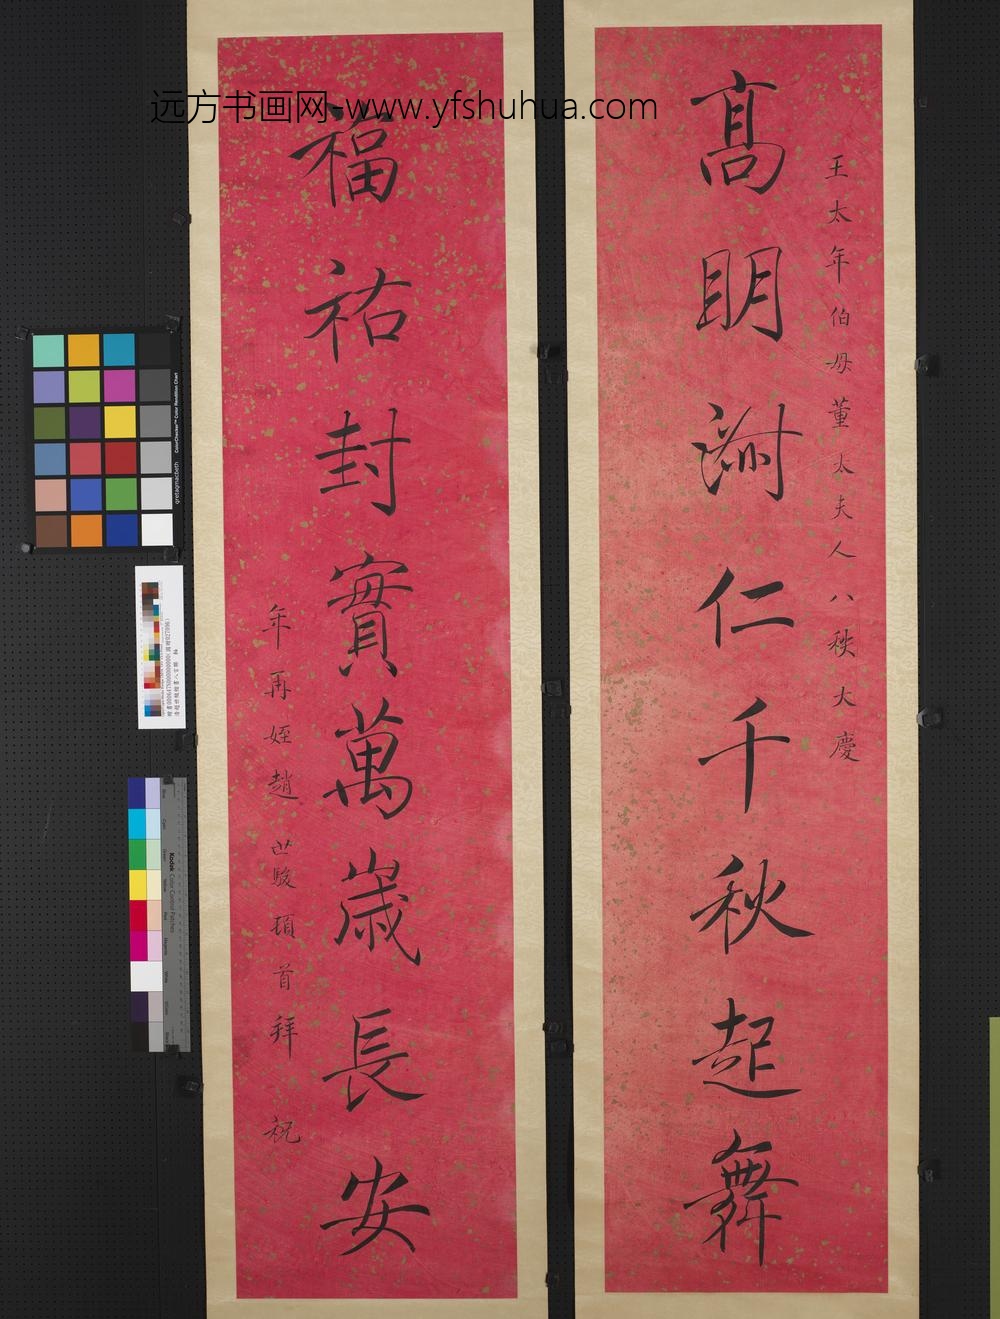 远方书画网-www.yfshuhua.com
王太年伯母董太夫人八秩大慶
高明澍仁千秋起舞
福祐封實萬歲長安
年再姪趙世駿頓首拜祝